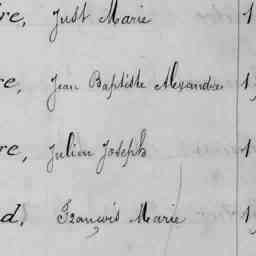 re, Just Marie 1
re, Jean Baptiste Alexandre 1
re, Julien Joseph 1
d, François Marie 1